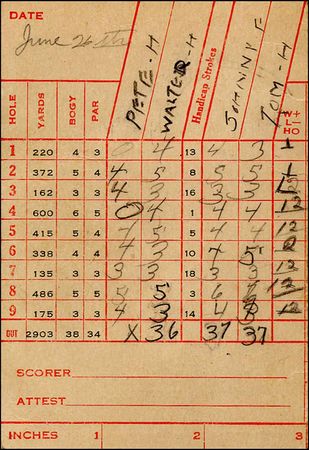 DATE
June 26th
HOLE YARDS BOGY PAR PETE-H WALTER-H Handicap Strokes JOHNNY F TOM-H W+ L- HO
1 220 4 3 0 4 13 4 3
2 372 5 4 4 5 8 5 5
3 162 3 3 4 3 16 3 3
4 600 6 5 0 4 1 4 4 12
5 415 5 4 4 5 4 4 12
6 338 4 4 4 3 10 4 5
7 135 3 3 3 3 18 3 3 12
8 486 5 5 5 5 3 6 12
9 175 3 3 4 3 14 4 12
OUT 2903 38 34 X 36 37 37
SCORER
ATTEST
INCHES 1 2 3